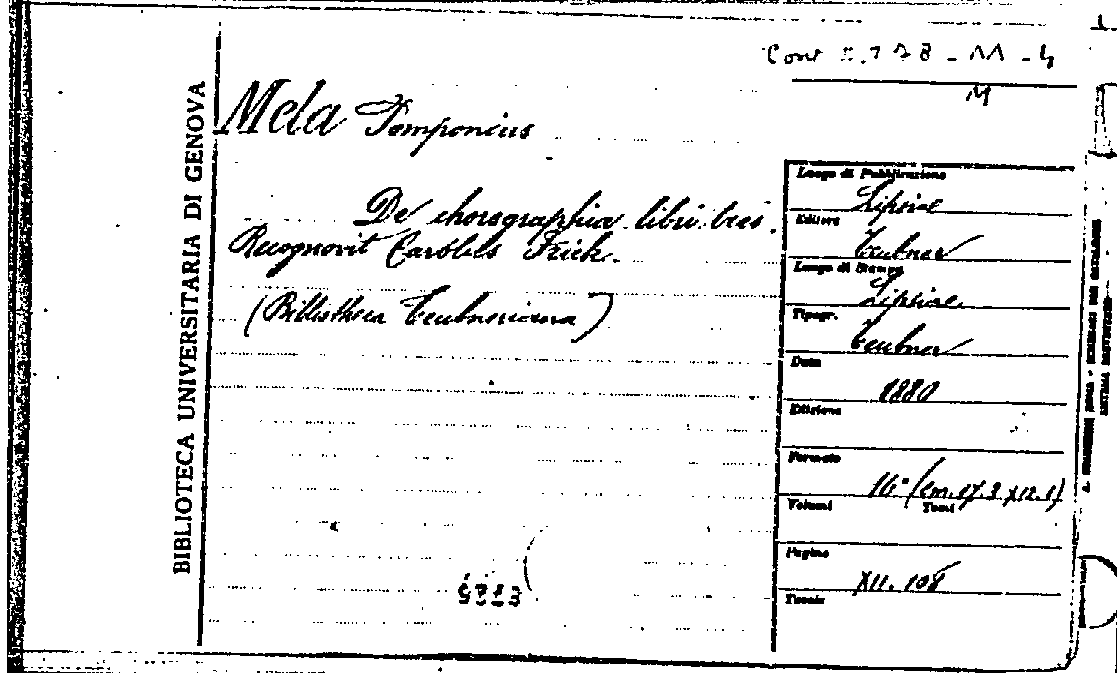 M
BIBLIOTECA UNIVERSITARIA DI GENOVA
Mela Pomponius
De chorographia libri tres.
Recognovit Carolus Frick.
(Bibliotheca Teubneriana)
Luogo di Pubblicazione
Lipsiae
Editore
Teubner
Luogo di Stampa
Lipsiae
Tipogr.
Teubner
Data
1880
Edizione
Formato
16° (cm. 17.3 x 12.1)
Volumi Tomi
Pagine
XII. 108